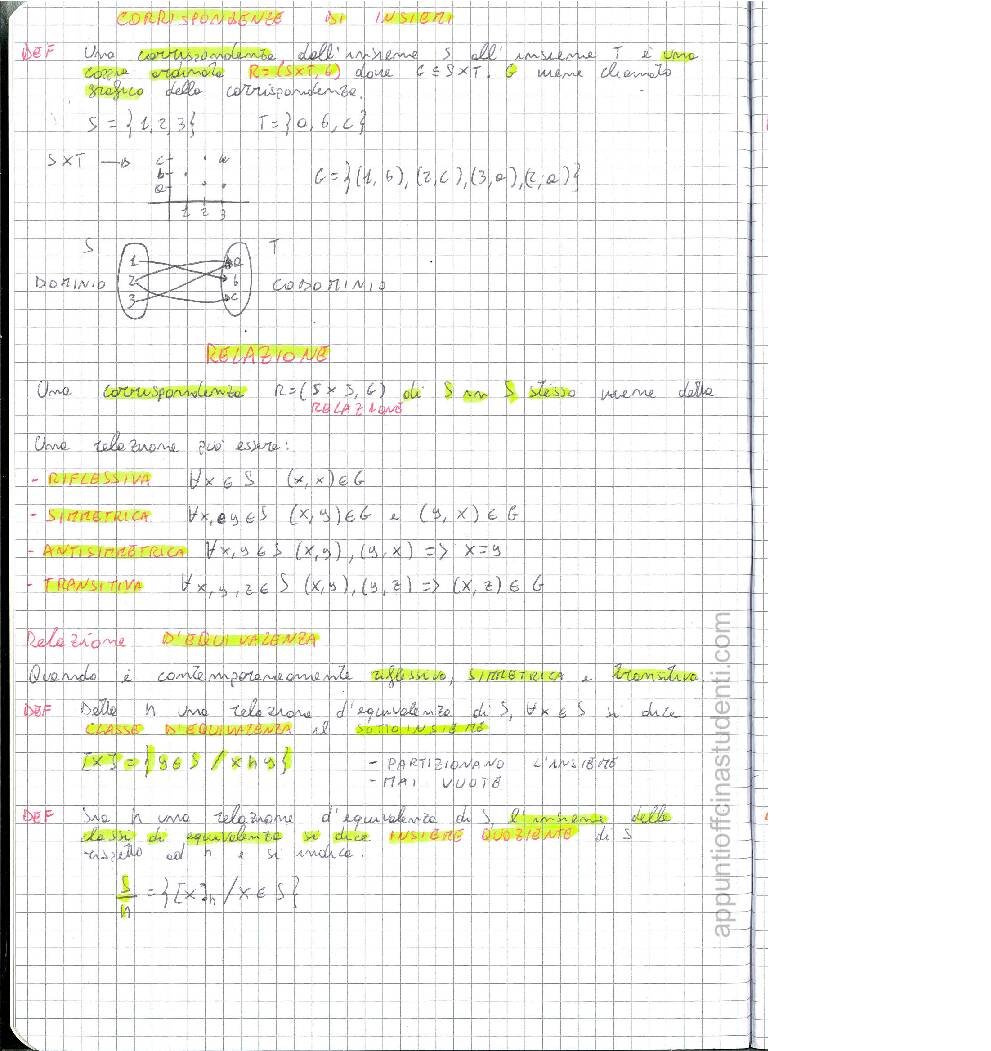 CORRISPONDENZE DI INSIEMI
DEF Una corrispondenza dall'insieme S all'insieme T è una
coppia ordinata R=(S×T, G) dove G⊆S×T. G viene chiamato
grafico della corrispondenza.
S={1,2,3} T={a,b,c}
S×T → c b a 1 2 3
G={(1,b),(2,c),(3,a),(2,a)}
S T
DOMINIO 1 2 3 a b c CODOMINIO
RELAZIONE
Una corrispondenza R=(S×S,G) di S in S stesso viene detta
RELAZIONE
Una relazione può essere:
- RIFLESSIVA ∀x∈S (x,x)∈G
- SIMMETRICA ∀x,e y∈S (x,y)∈G e (y,x)∈G
- ANTISIMMETRICA ∀x,y∈S (x,y),(y,x) => x=y
- TRANSITIVA ∀x,y,z∈S (x,y),(y,z) => (x,z)∈G
Relazione D'EQUIVALENZA
Quando è contemporaneamente riflessiva, SIMMETRICA e transitiva
DEF Detta h una relazione d'equivalenza di S, ∀x∈S si dice
CLASSE D'EQUIVALENZA il SOTTOINSIEME
[x]={y∈S / x h y} - PARTIZIONANO L'INSIEME
- MAI VUOTE
DEF Sia h una relazione d'equivalenza di S, l'insieme delle
classi di equivalenza si dice INSIEME QUOZIENTE di S
rispetto ad h e si indica.
S/h={[x]h / x∈S}
appuntiofficinastudenti.com